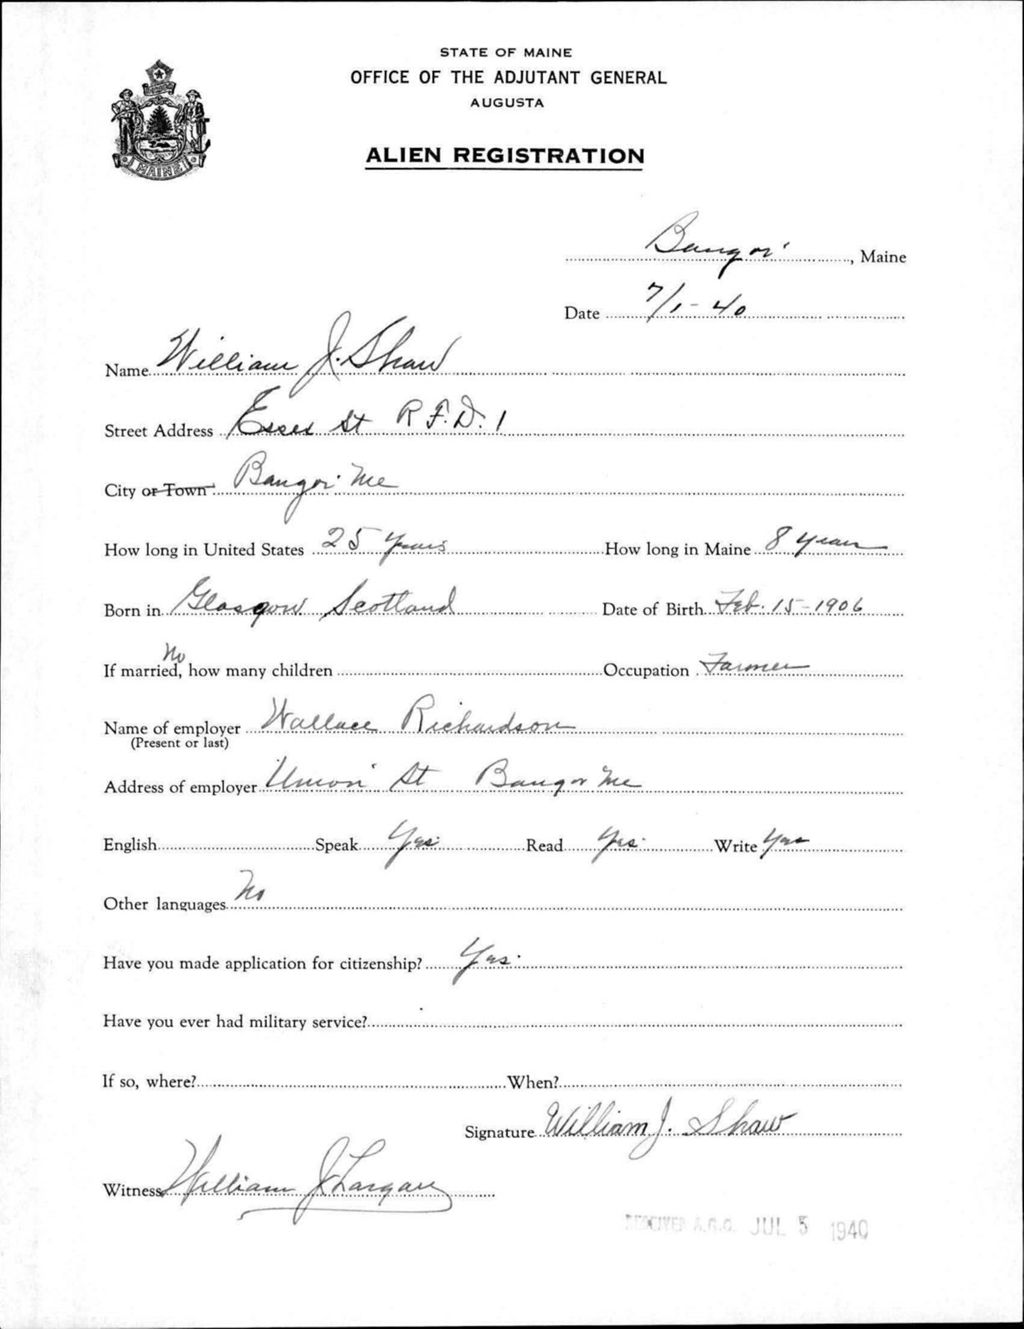 STATE OF MAINE
OFFICE OF THE ADJUTANT GENERAL
AUGUSTA
MAINE
ALIEN REGISTRATION
Bangor, Maine
Date 7/1-40
Name William J. Shaw
Street Address Essex St R.F.D. 1
City or Town Bangor Me
How long in United States 25 Years How long in Maine 8 years
Born in Glasgow Scotland Date of Birth Feb. 15-1906
No
If married, how many children Occupation Farmer
Name of employer Wallace Richardson
(Present or last)
Address of employer Union St Bangor Me
English Speak Yes Read Yes Write Yes
Other languages No
Have you made application for citizenship? Yes
Have you ever had military service?
If so, where? When?
Signature William J. Shaw
Witness William J
RECEIVED A.G.O. JUL 5 1940